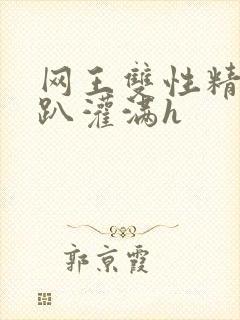 网王雙性精
趴灌满h
郭京霞